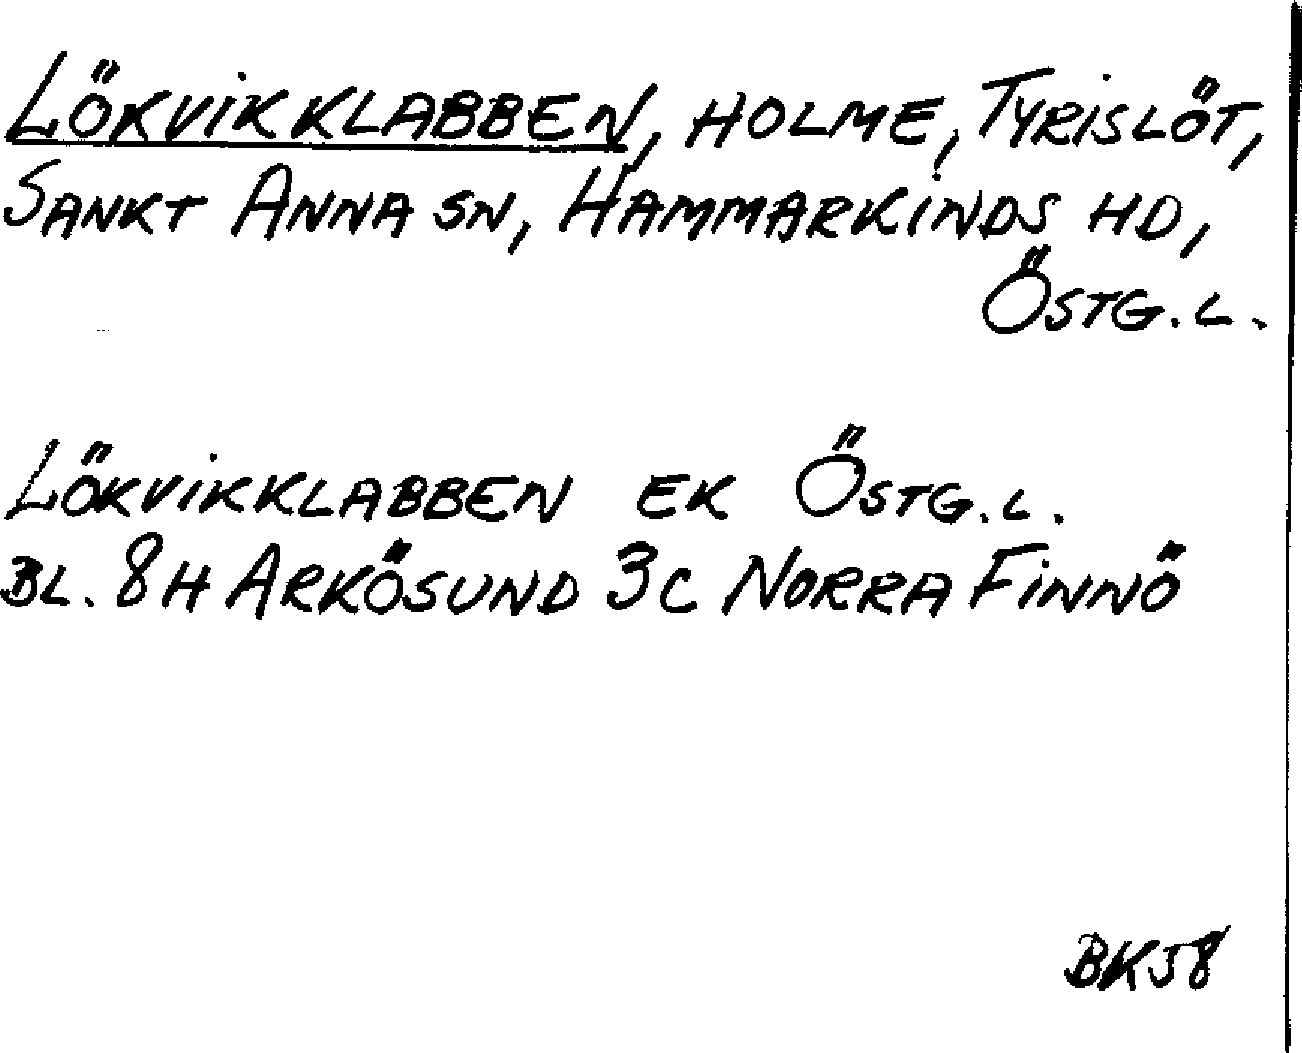 LÖKVIKKLABBEN, HOLME, TYRISLÖT,
SANKT ANNA SN, HAMMARKINDS HD,
ÖSTG.L.
LÖKVIKKLABBEN EK ÖSTG.L.
BL. 8H ARKÖSUND 3C NORRA FINNÖ
BK58